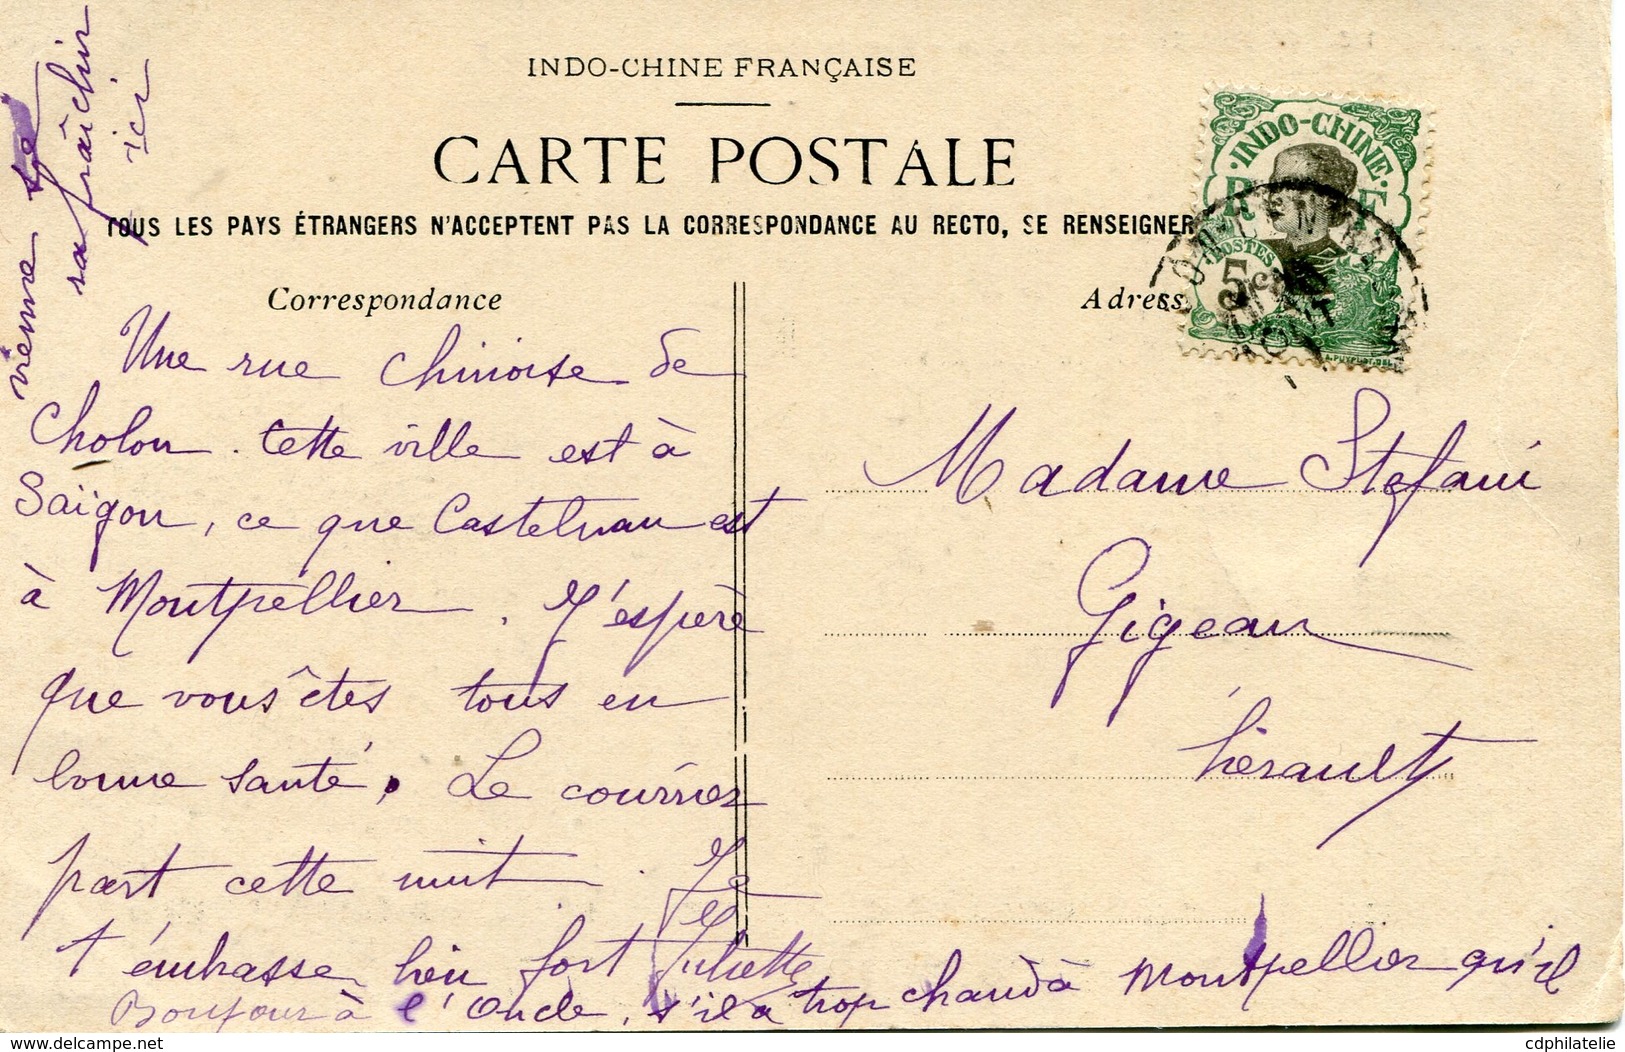 INDO-CHINE FRANÇAISE
CARTE POSTALE
TOUS LES PAYS ÉTRANGERS N'ACCEPTENT PAS LA CORRESPONDANCE AU RECTO, SE RENSEIGNER
Correspondance
Adress
INDO-CHINE
R F
POSTES
5c
Une rue chinoise de
Cholon. Cette ville est à
Saïgon, ce que Castelnau est
à Montpellier. J'espère
que vous êtes tous en
bonne santé. Le courrier
part cette nuit. Je
t'embrasse bien fort Juliette
Bonjour à l'Oncle, s'il a trop chaud à Montpellier qu'il
vienne se
rafraîchir
ici
Madame Stefani
Gigean
Hérault
cdphilatelie